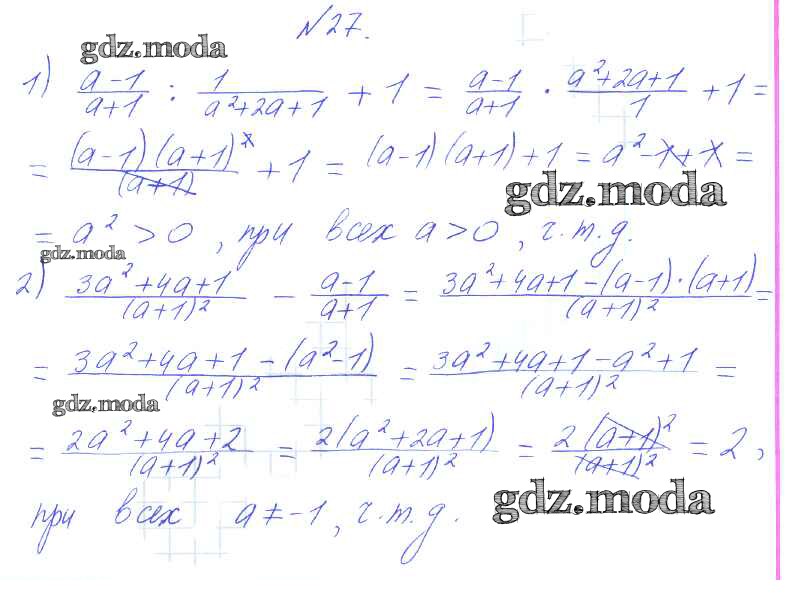 №27.
gdz.moda
1) (a-1)/(a+1) : 1/(a²+2a+1) + 1 = (a-1)/(a+1) · (a²+2a+1)/1 + 1 =
= (a-1)(a+1)²/(a+1) + 1 = (a-1)(a+1)+1 = a²-1+1 =
gdz.moda
= a² > 0, при всех a > 0, ч.т.д.
gdz.moda
2) (3a²+4a+1)/(a+1)² - (a-1)/(a+1) = (3a²+4a+1-(a-1)·(a+1))/(a+1)² =
= (3a²+4a+1-(a²-1))/(a+1)² = (3a²+4a+1-a²+1)/(a+1)² =
gdz.moda
= (2a²+4a+2)/(a+1)² = 2(a²+2a+1)/(a+1)² = 2(a+1)²/(a+1)² = 2,
gdz.moda
при всех a ≠ -1, ч.т.д.